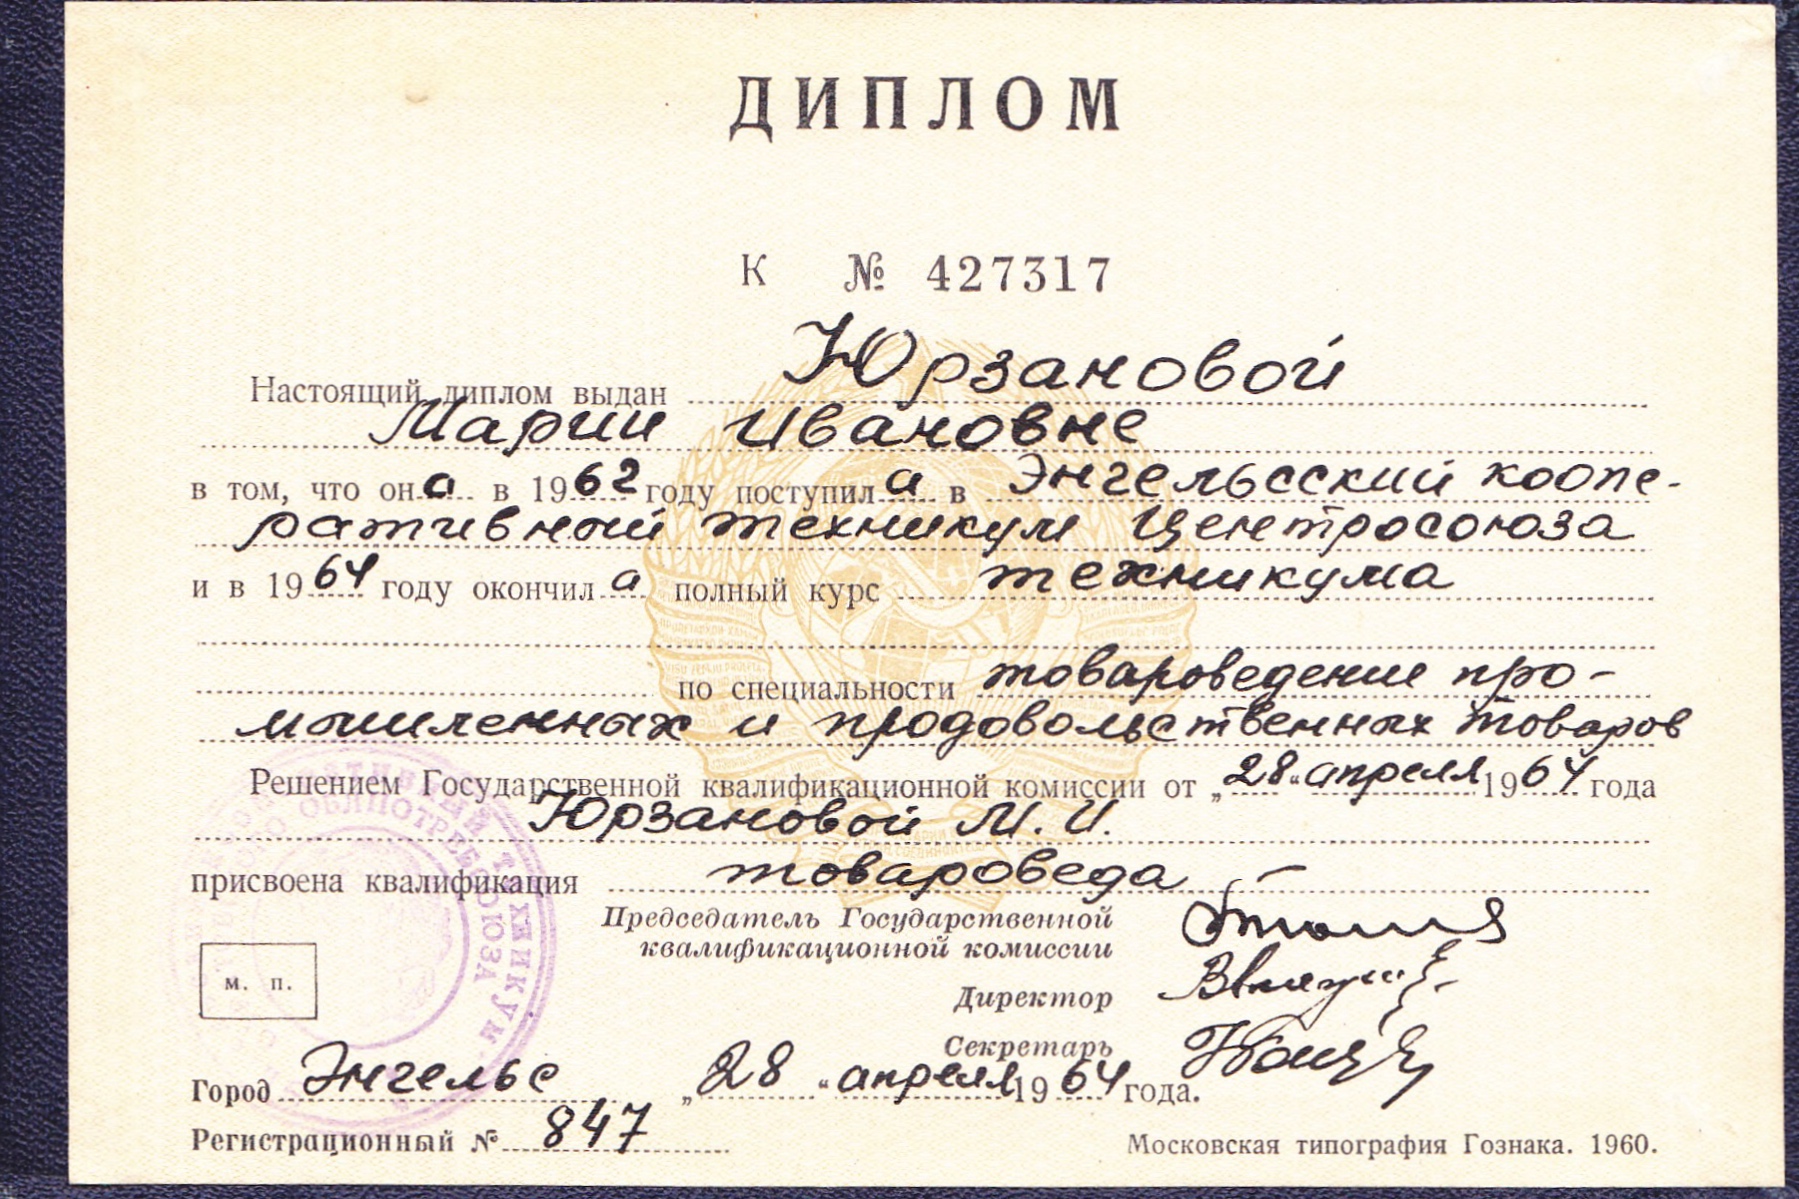 ДИПЛОМ
К № 427317
Настоящий диплом выдан Юрзановой
Марии Ивановне
в том, что она в 1962 году поступила в Энгельсский коопе-
ративный техникум Центросоюза
и в 1964 году окончила полный курс техникума
по специальности товароведение про-
мышленных и продовольственных товаров
Решением Государственной квалификационной комиссии от „28“ апреля 1964 года
Юрзановой М. И.
присвоена квалификация товароведа
Председатель Государственной
квалификационной комиссии
Директор
м. п.
Секретарь
Город Энгельс „28“ апреля 1964 года.
Регистрационный № 847
Московская типография Гознака. 1960.